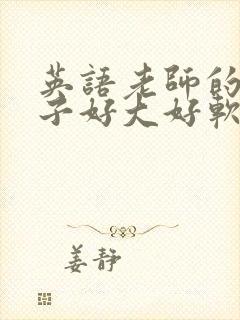 英語老師的
子好大好軟
姜靜